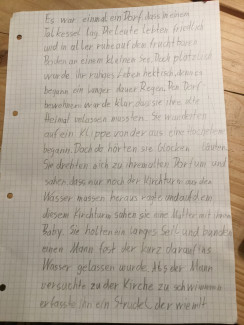 Es war einmal ein Dorf, dass in einem
Talkessel lag. Die Leute lebten friedlich
und in aller ruhe auf den fruchtbaren
Boden an einem kleinen See. Doch plötzlich
wurde ihr ruhiges Leben hektisch, denn es
begann ein langer dauer Regen. Den Dorf
bewohnern wurde klar, das sie ihre alte
Heimat verlassen mussten. Sie wanderten
auf ein Klippe von der aus eine Hochebene
begann. Doch da hörten sie Glocken läuten.
Sie drehten sich zu ihrem alten Dorf um und
sahen das nur noch der Kirchturm aus den
Wasser heraus ragte und auf
diesem Kirchturm sahen sie eine Mutter mit ihrem
Baby. Sie holten ein langes Seil und banden
einen Mann fest der kurz darauf ins
Wasser gelassen wurde. Als der Mann
versuchte zu der Kirche zu schwimmen
erfasste ihn ein Strudel, der